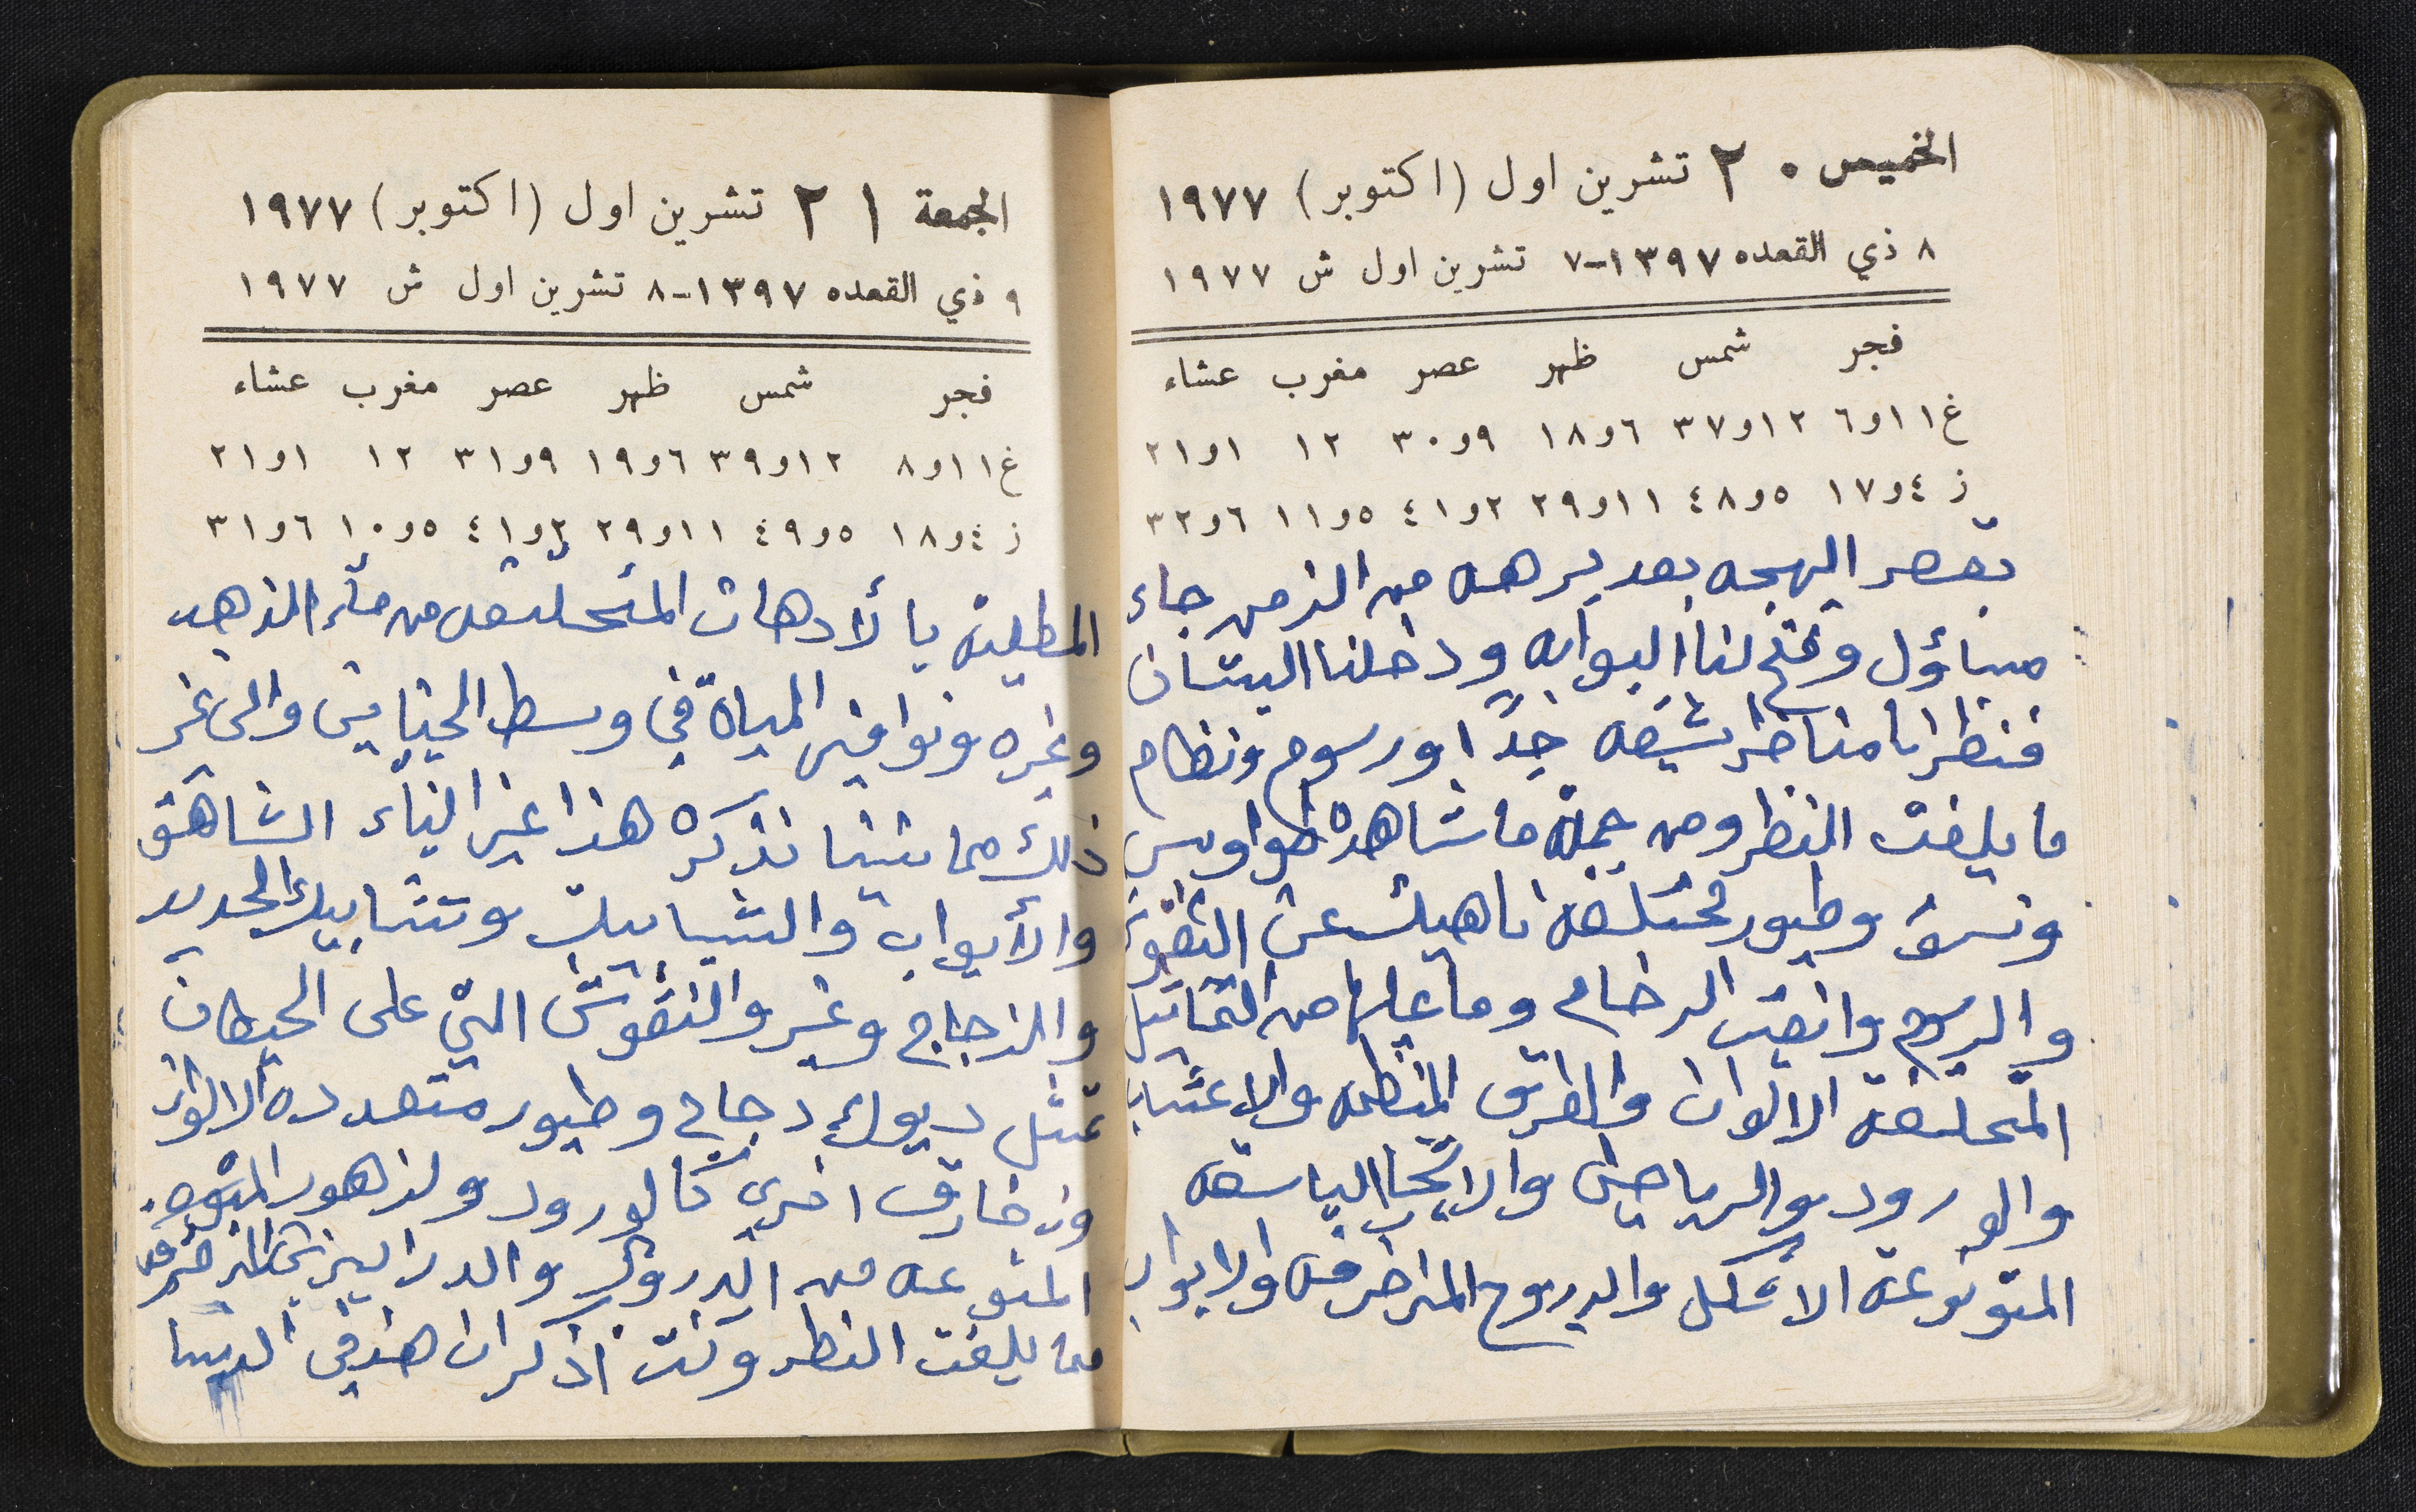 الخميس ٢٠ تشرين اول (اكتوبر) ١٩٧٧
٨ ذي القعده ١٣٩٧-٧ تشرين اول ش ١٩٧٧
فجر شمس ظهر عصر مغرب عشاء
غ ١١و٦ ١٢و٣٧ ٦و١٨ ٩و٣٠ ١٢ ١و٢١
ز ٤و١٧ ٥و٤٨ ١١و٢٩ ٢و٤١ ٥و١١ ٦و٣٢
بقصر البهجه بعد برهه من الزمن جاء
مسؤل وفتح لنا البوابه ودخلنا البستان
فنظرنا مناظر شيقه جدًا ورسوم ونظام
ما يلفت النظر ومن جملة ما شاهده طواويس
ونسور وطيور مختلفه ناهيك عن النقوش
والرسوم وانصب الرخام وما عليها من التماثيل
المختلفة الالوان والطرق المنظمه والاعشاب
والورود والرياحين والاشجار الباسقه
المتنوعة الاشكال والدروج المزخرفه والابواب
الجمعة ٢١ تشرين اول (اكتوبر) ١٩٧٧
٩ ذي القعده ١٣٩٧-٨ تشرين اول ش ١٩٧٧
فجر شمس ظهر عصر مغرب عشاء
غ ١١و٨ ١٢و٣٩ ٦و١٩ ٩و٣١ ١٢ ١و٢١
ز ٤و١٨ ٥و٤٩ ١١و٢٩ ٢و٤١ ٥و١٠ ٦و٣١
المطليه بألادهان المختلفه من ماء الذهب
وغيره ونوافير المياة في وسط الجناين والى غير
ذلك مما نسينا نذكره هذا غير البناء الشاهق
والأبواب والشبابيك وتشابيك الحديد
والزجاج وغير والنقوش التي على الحيطان
تمثل ديوك دجاج وطيور متعدده الالوان
وزخارف اخرى كالورود ولزهور
المنوعه من الدروج والدرابزين المزخرفه
مما يلفت النظر وكنت اذكر ان هذ في الدنيا